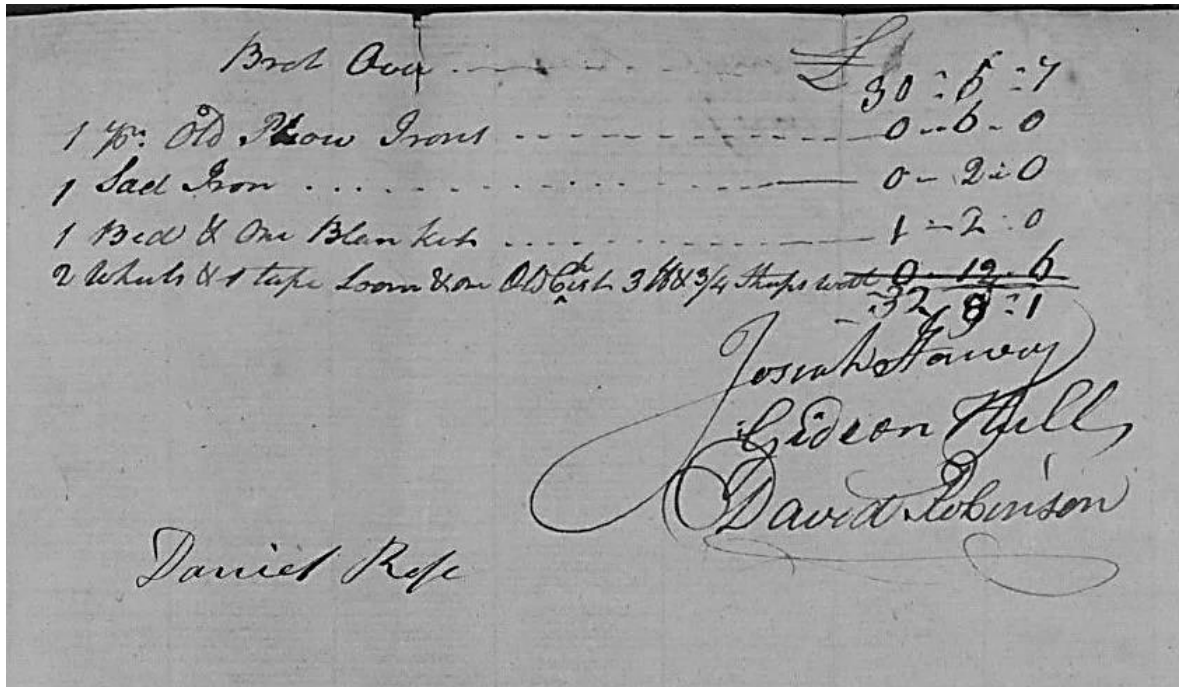 Brot Over £ 30 - 5 - 7
1 pr. Old Plow Irons 0 - 6 - 0
1 Sad Iron 0 - 2 - 0
1 Bed & One Blanket 1 - 2 - 0
2 Wheels & 1 tape Loom & one Old Chist 3 lb & 3/4 Sheeps 0 - 12 - 6
32 - 8 - 1
Josiah
Gideon Hull
David Robinson
Daniel Rose